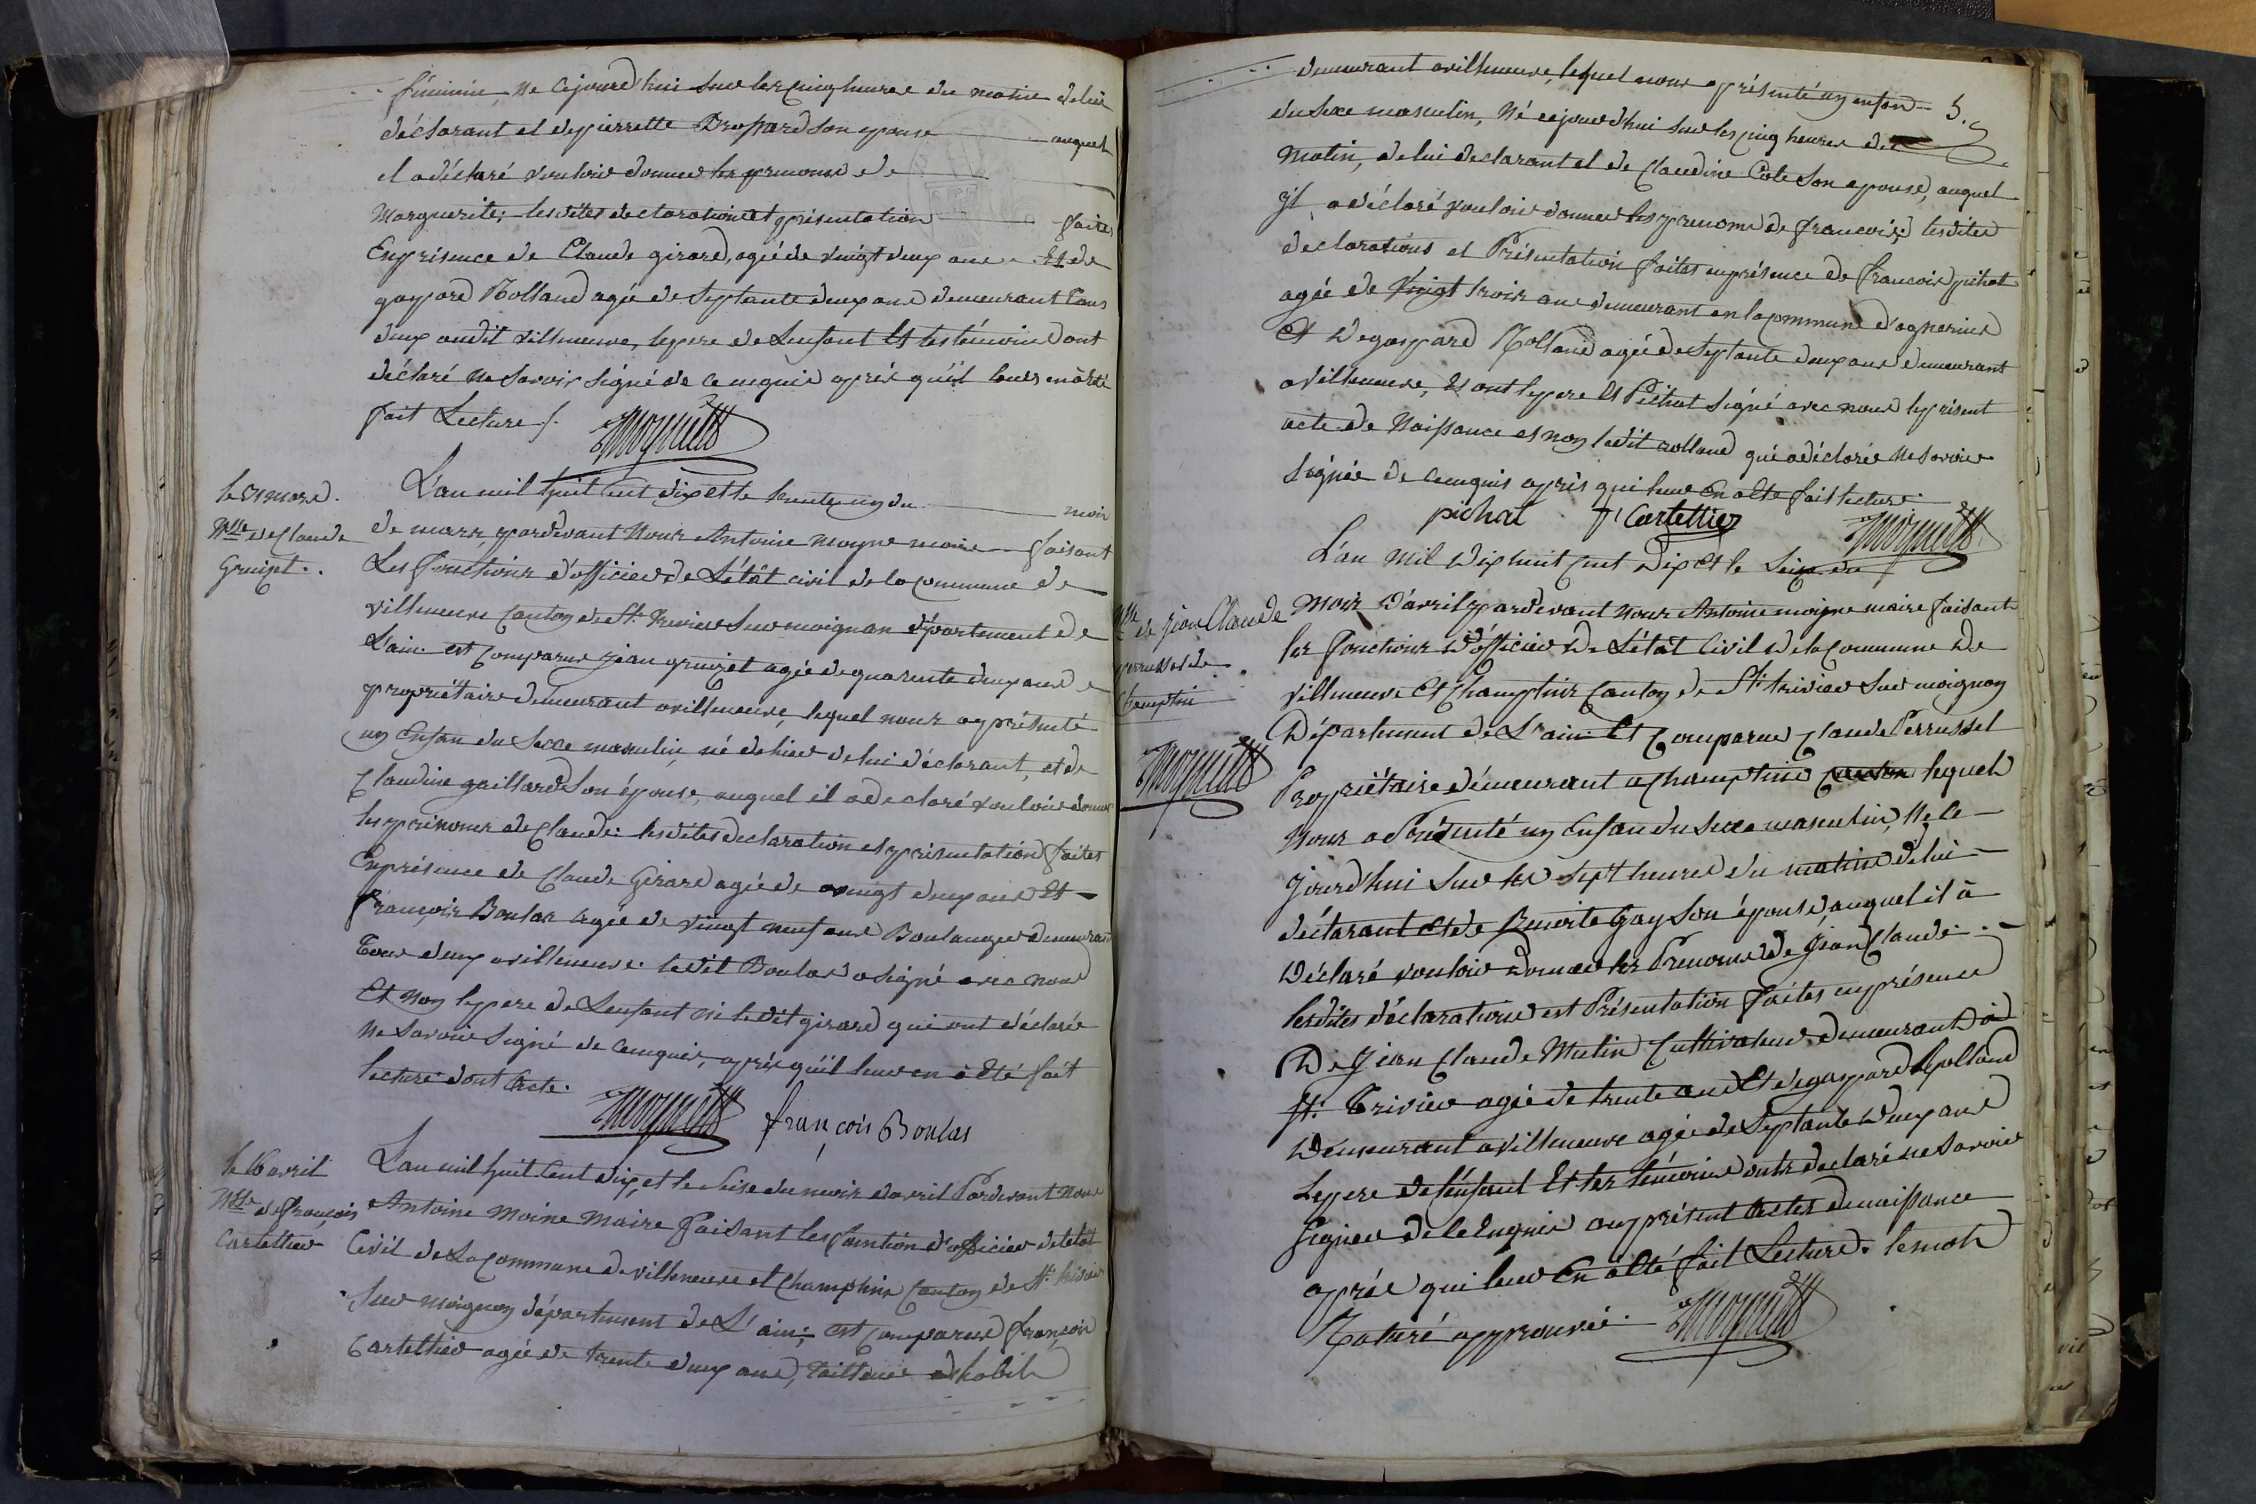 féminin, né cejourd'hui sur les cinq heures du matin de lui
déclarant et de pierrette Brossard son epouse auquel
il a déclaré vouloir donner les prenoms de
Marguerite; lesdites declaration et présentation faites
En présence de Claude girard, agé de vingt deux ans Et de
gaspard Rolland agée de septante deux ans demeurant tous
deux audit villeneuve, le pere de Lenfant Et les témoins ont
déclaré ne savoir signé de ce enquis après qu'il leurs en a été
fait Lecture /.
le 31 mars.
Nce de Claude
Gruizet..
L'an mil huit cent dix et le trente un du mois
de mars, pardevant Nous Antoine moyne maire faisant
Les fonctions d'officier de L'état civil de la commune de
villeneuve Canton de St. trivier sur moignan département de
L'ain est comparus jean gruizet agée de quarente deux ans
propriétaire demeurant avilleneuve, lequel nous a présenté
un Enfan du sexe masculin, né de hier de lui déclarant, et de
Claudine gaillard son épouse, auquel il a declaré vouloir donner
les prénoms de Claude: lesdites declaration et présentation faites
En présence de Claude Girard agée de vingt deux ans Et
françois Boulas agée de vingt neuf ans Boulanger demeurant
tous deux avilleneuve. ledit Boulas a signé avec nous
Et non le pere de Lenfant ni ledit girard qui ont déclarée
ne savoir signé de ce enquis, après qu'il leur en a été fait
lecture dont Acte.
françois Boulas
le 16 avril
Nce de françois
Cartellier
L'an mil huit Cent dix, et le seise du mois d'avril Pardevant Nous
Antoine Moine Maire faisant les fonction d'officier de letat
Civil de La Commune de villeneuve et Champtin Canton de St. trivier
sur moignan département de L'ain; est comparus françois
Cartellier agée de trente deux ans, tailleur d'habit
demeurant avilleneuve, lequel nous a présenté un enfan 5.
du sexe masculin, Né cejourd'hui sur les cinq heures de
Matin, de lui declarant et de Claudine Côte son epouse, auquel
il a déclaré vouloir donner les prenoms de françois; lesdites
declarations et Présentation faites en présence de françois pichat
agée de vingt trois ans demeurant en la commune d'agnerins
Et de gaspard Rolland agée de septante deux ans demeurant
avilleneuve, Et ont le pere Et Pichat signé avec nous le présent
acte de Naissance et non ledit rolland qui a déclarée ne savoir
signée de ce enquis après qui leur En a été fait lecture.
pichat f. Cartellier
L'an Mil Dix huit Cent Dix et le Seize du
Nce de Jean Claude
perrussel de
Champtin
mois D'avril, pardevant nous Antoine moyne maire faisant
les fonctions D'officier De L'état Civil De la Commune De
villeneuve Et Champtins Canton de St. trivier sur moignan
Département de L'ain Et Comparus Claude Perrussel
Propriétaire demeurant a Champtins lequel
Nous a Présenté un Enfan du sexe masculin, Né Ce
jourd'hui sur les sept heures du matin de lui
déclarant Et de Benoite Gay son épouse, auquel il à
Déclaré vouloir donner les Prenoms de Jean Claude.
lesdites déclarations et Présentation faites en présence
De Jean Claude Mutin Cultivateur demeurant à
St. Trivier agée de trente ans Et de gaspard Rolland
Demeurant avilleneuve agée de Septante Deux ans
Le pere de l'enfant Et les témoins ont declaré ne savoir
signer de Ce Enquis au présent Acte de naissance
après qui leur En a été fait Lecture. le mot
Raturé approuvée.